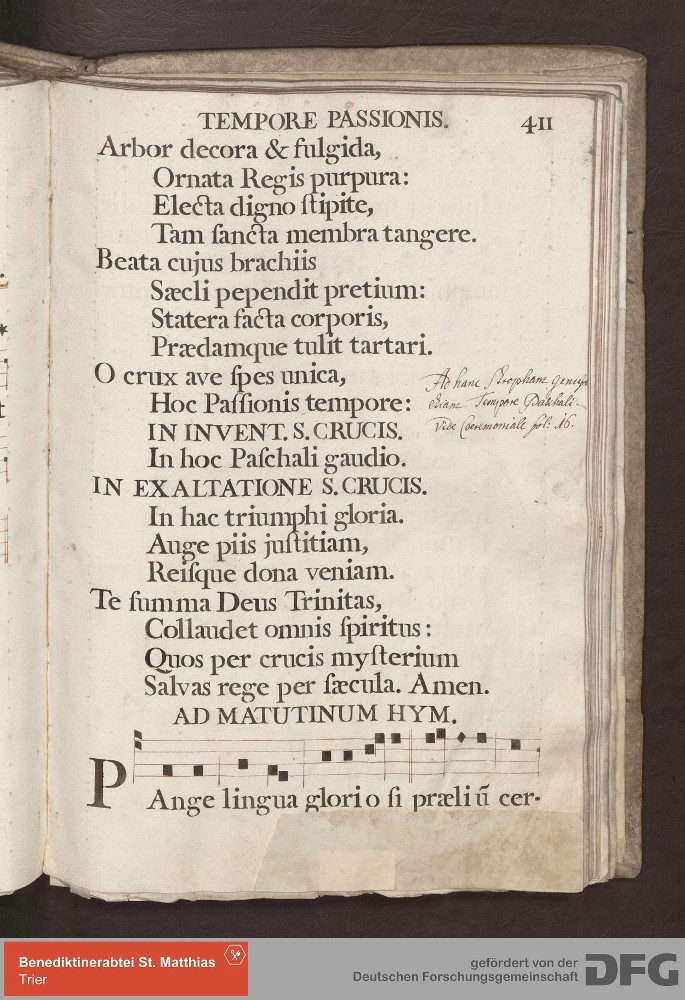 TEMPORE PASSIONIS. 411
Arbor decora & fulgida,
Ornata Regis purpura:
Electa digno ſtipite,
Tam ſancta membra tangere.
Beata cujus brachiis
Sæcli pependit pretium:
Statera facta corporis,
Prædamque tulit tartari.
O crux ave ſpes unica,
Hoc Paſſionis tempore:
IN INVENT. S. CRUCIS.
In hoc Paſchali gaudio.
IN EXALTATIONE S. CRUCIS.
In hac triumphi gloria.
Auge piis juſtitiam,
Reiſque dona veniam.
Te ſumma Deus Trinitas,
Collaudet omnis ſpiritus:
Quos per crucis myſterium
Salvas rege per ſæcula. Amen.
AD MATUTINUM HYM.
PAnge lingua glori o ſi præli ū cer-
Ad hanc Stropham
etiam Tempore Paschali.
Vide Cæremoniale fol: 16.
Benediktinerabtei St. Matthias
Trier
gefördert von der
Deutschen Forschungsgemeinschaft
DFG